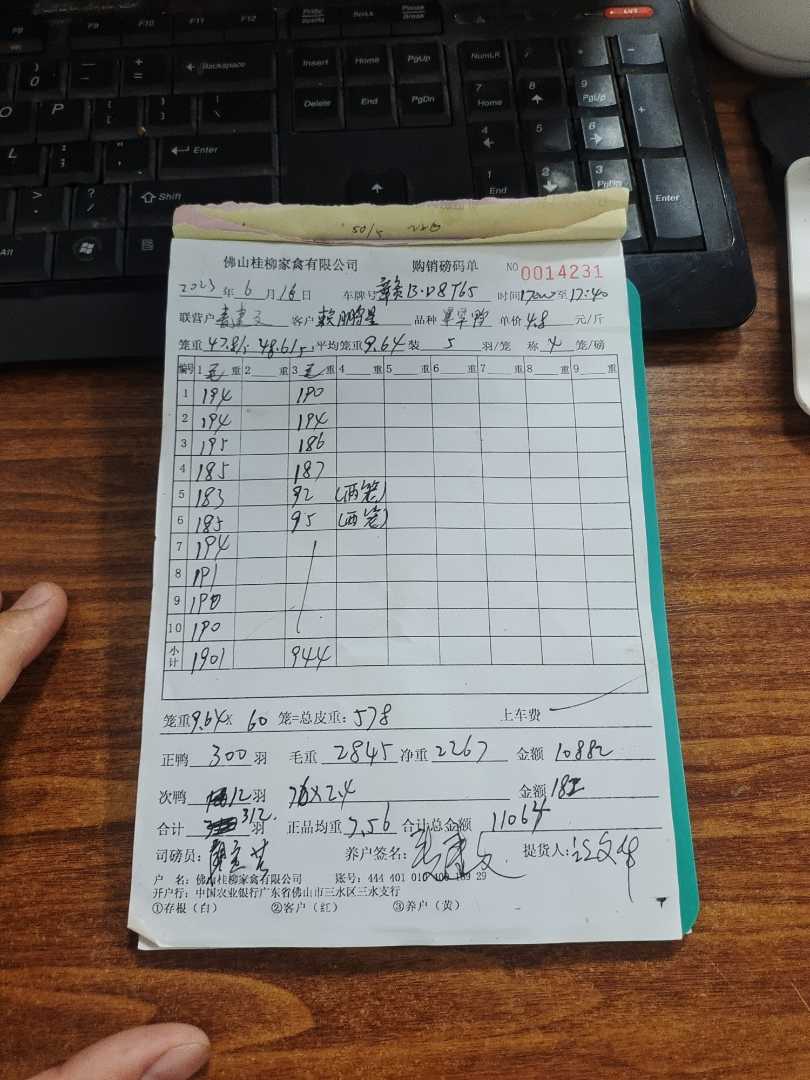 F9 F10 F11 F12 PrtSc SysRq ScrLk Pause Break
Backspace Insert Home PgUp NumLR
Delete End PgDn 7 Home 8 9 PgUp
Enter 4 5 6
Shift 1 End 2 3 PgDn Enter
Alt
佛山桂柳家禽有限公司 购销磅码单 NO 0014231
2023年6月16日 车牌号赣B·D8T65 时间17:00至17:40
联营户 客户 品种 单价4.8元/斤
笼重47.8/5 48.6/5 平均笼重9.64装5羽/笼 称4笼/磅
编号 1毛重 2重 3毛重 4重 5重 6重 7重 8重 9重
1 194 190
2 194 194
3 195 186
4 185 187
5 183 92 (两笼)
6 185 95 (两笼)
7 194
8 191
9 190
10 190
小计 1901 944
笼重9.64× 60笼=总皮重:578 上车费
正鸭300羽 毛重2845净重2267 金额10882
次鸭12羽 76×2.4 金额182
合计312羽 正品均重7.56 合计总金额11064
司磅员: 养户签名: 提货人:
户 名:佛山桂柳家禽有限公司 账号:444 401 010 400 189 29
开户行:中国农业银行广东省佛山市三水区三水支行
①存根(白) ②客户(红) ③养户(黄)